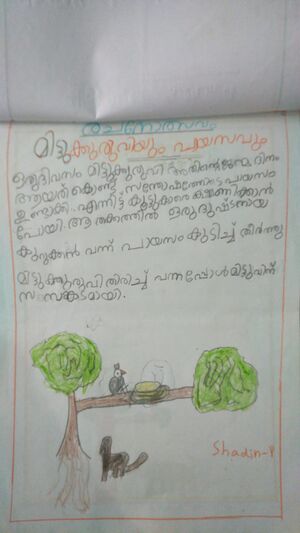 രചനോത്സവം
മിട്ടുക്കുരുവിയും പായസവും
ഒരുദിവസം മിട്ടുക്കുരുവി അതിന്റെ ജന്മദിനം
ആയത് കൊണ്ട് സന്തോഷത്തോടെ പായസം
ഉണ്ടാക്കി. എന്നിട്ട് കൂട്ടുകാരെ ക്ഷണിക്കാൻ
പോയി. ആ തക്കത്തിൽ ഒരു ദുഷ്ടനായ
കുറുക്കൻ വന്ന് പായസം കുടിച്ച് തീർത്തു
മിട്ടുക്കുരുവി തിരിച്ച് വന്നപ്പോൾ മിട്ടുവിന്
സങ്കടമായി.
Shadin-P